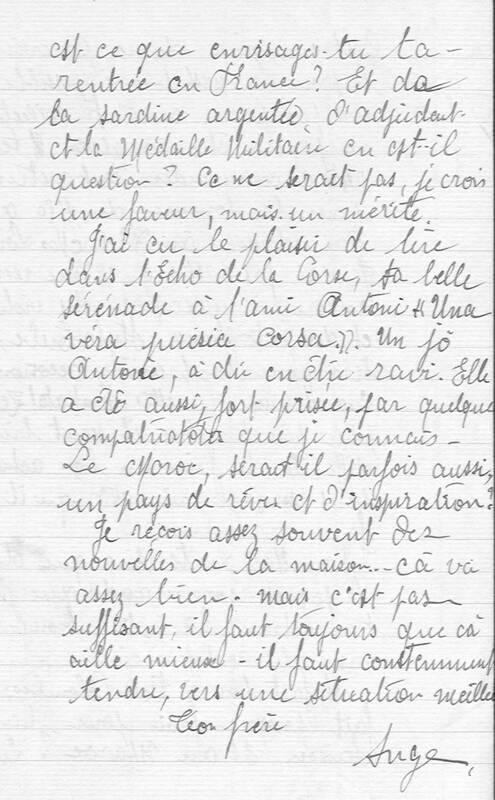 est ce que envisages-tu ta
rentrée en France? Et da
la sardine argentée d'adjudant
et la Médaille Militaire en est-il
question? Ce ne serait pas, je crois
une faveur, mais un mérite.
J'ai eu le plaisir de lire
dans l'Echo de la Corse, ta belle
sérénade à l'ami Antoni "Una
véra puésia Corsa.". Un jô
Antoine, à dû en être ravi. Elle
a été aussi, fort prisée, par quelque
compatriotes que je connais -
Le Maroc, serait il parfois aussi,
un pays de rêve et d'inspiration?
Je reçois assez souvent des
nouvelles de la maison... cà va
assez bien - mais c'est pas
suffisant, il faut toujours que cà
aille mieux - il faut constemment
tendre, vers une situation meilleu
Ton frère
Ange,